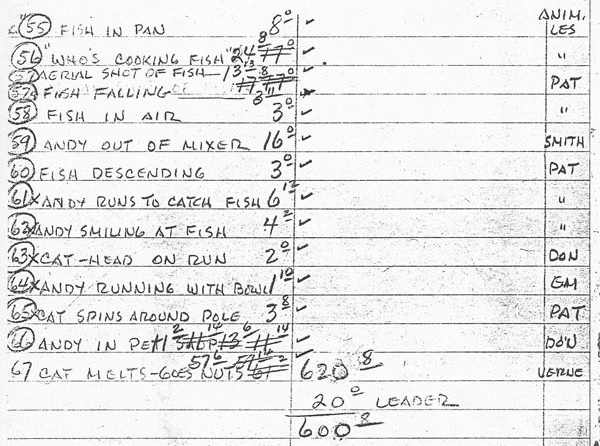 ANIM.
(55) FISH IN PAN 8⁰ ✓ LES
(56) "WHO'S COOKING FISH" 24⁸ ✓ "
AERIAL SHOT OF FISH— 13¹³
FISH FALLING ✓ PAT
(58) FISH IN AIR 3⁰ ✓ "
(59) ANDY OUT OF MIXER 16⁰ ✓ SMITH
(60) FISH DESCENDING 3⁰ ✓ PAT
(61) X ANDY RUNS TO CATCH FISH 6¹² ✓ "
(62) X ANDY SMILING AT FISH 4² ✓ "
(63) X CAT-HEAD ON RUN 2⁰ ✓ DON
(64) X ANDY RUNNING WITH BOWL 1¹⁰ ✓ EM
(65) X CAT SPINS AROUND POLE 3⁸ ✓ PAT
(66) ANDY IN DON
67 CAT MELTS-GOES NUTS 57⁶ 620⁸ VERNE
20⁰ LEADER
600⁸